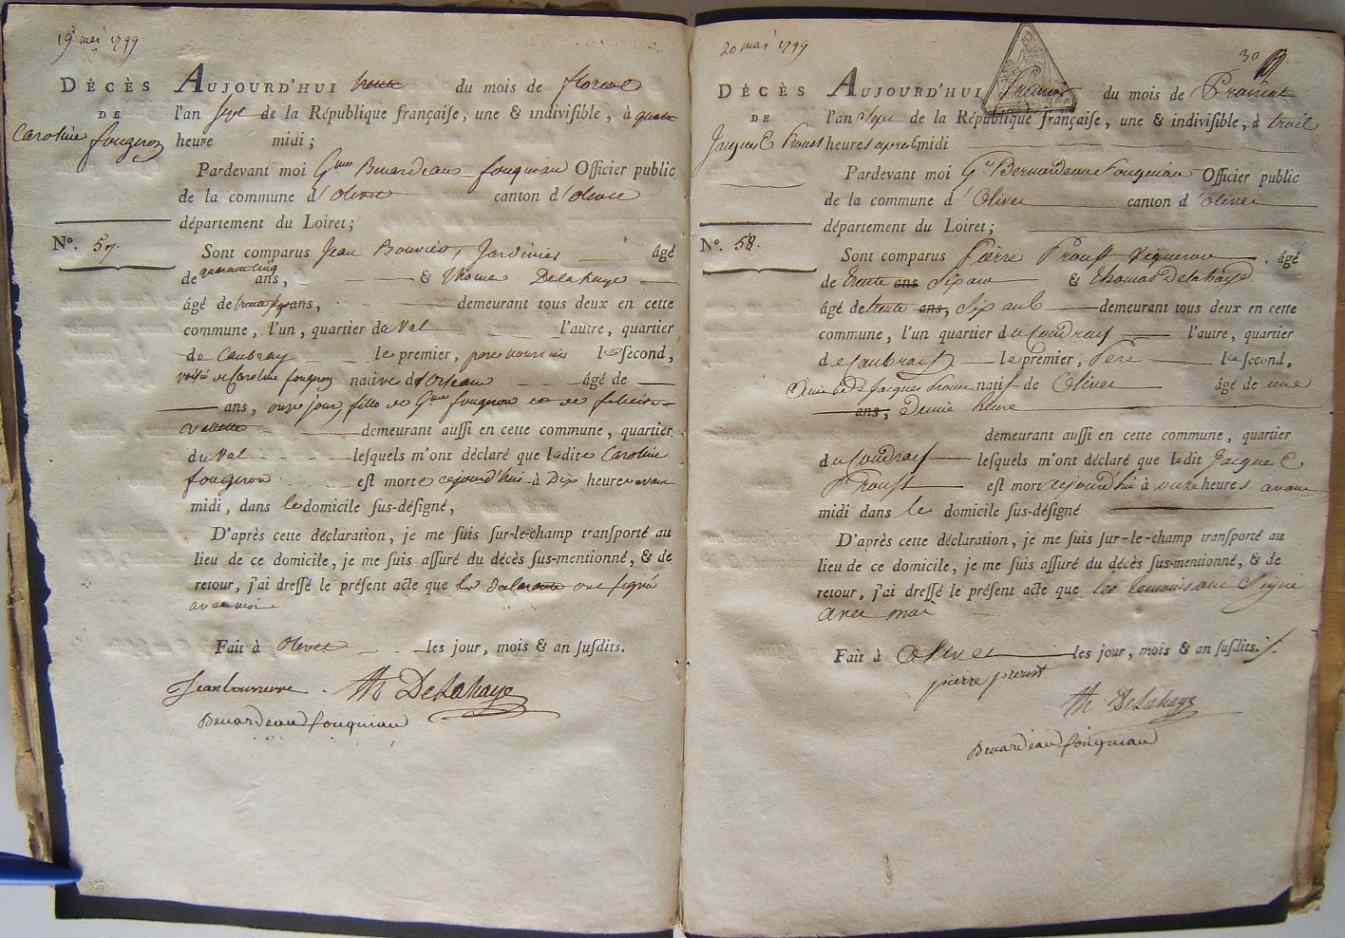 19 mai 1799
DÉCÈS
DE
Caroline fougeron
No. 57.
AUJOURD'HUI trente du mois de floreal
l'an sept de la République françaiſe, une & indiviſible, à quatre
heure midi;
Pardevant moi Benardeau fouqueau Officier public
de la commune d'olivet canton d'olivet
département du Loiret;
Sont comparus Jean Bouvier, Jardinier âgé
de quarante cinq ans, & Thomas Delahaye
âgé de trente six ans, demeurant tous deux en cette
commune, l'un, quartier du Val l'autre, quartier
de Caubray le premier, pere nouricier le ſecond,
voisin de Caroline fougeron native d'Orleans âgé de
ans, onze jours, fille de fougeron et de felicité
demeurant auſſi en cette commune, quartier
du Val leſquels m'ont déclaré que ladite Caroline
fougeron eſt morte cejourd'hui à Dix heures avant
midi, dans le domicile ſus-déſigné,
D'après cette déclaration, je me ſuis ſur-le-champ tranſporté au
lieu de ce domicile, je me ſuis aſſuré du décès ſus-mentionné, & de
retour, j'ai dreſſé le préſent acte que les ont signé
avec moi
Fait à Olivet les jour, mois & an ſuſdits.
Th DeLahaye
Benardeau fouqueau
20 mai 1799
30
DÉCÈS
DE
Jacques Proust
No. 58.
AUJOURD'HUI Premier du mois de Prairial
l'an Sept de la République françaiſe, une & indiviſible, à trois
heures apres midi
Pardevant moi Benardeau fouqueau Officier public
de la commune d'Olivet canton d'olivet
département du Loiret;
Sont comparus Pierre Proust Vigneron âgé
de trente ans Six ans & Thomas Delahaye
âgé de trente ans, Six ans demeurant tous deux en cette
commune, l'un quartier du Coudray l'autre, quartier
de Caubray le premier, Pere le ſecond,
de Jacques Proust natif de Olivet âgé de une
ans, Demie heure
demeurant auſſi en cette commune, quartier
du Coudray leſquels m'ont déclaré que ledit Jacques
Proust eſt mort cejourdhui à onze heures avant
midi dans le domicile ſus-déſigné
D'après cette déclaration, je me ſuis ſur-le-champ tranſporté au
lieu de ce domicile, je me ſuis aſſuré du décès ſus-mentionné, & de
retour, j'ai dreſſé le préſent acte que les Comparans Signe
avec moi
Fait à Olivet les jour, mois & an ſuſdits.
pierre proust
Th DeLahaye
Benardeau fouqueau